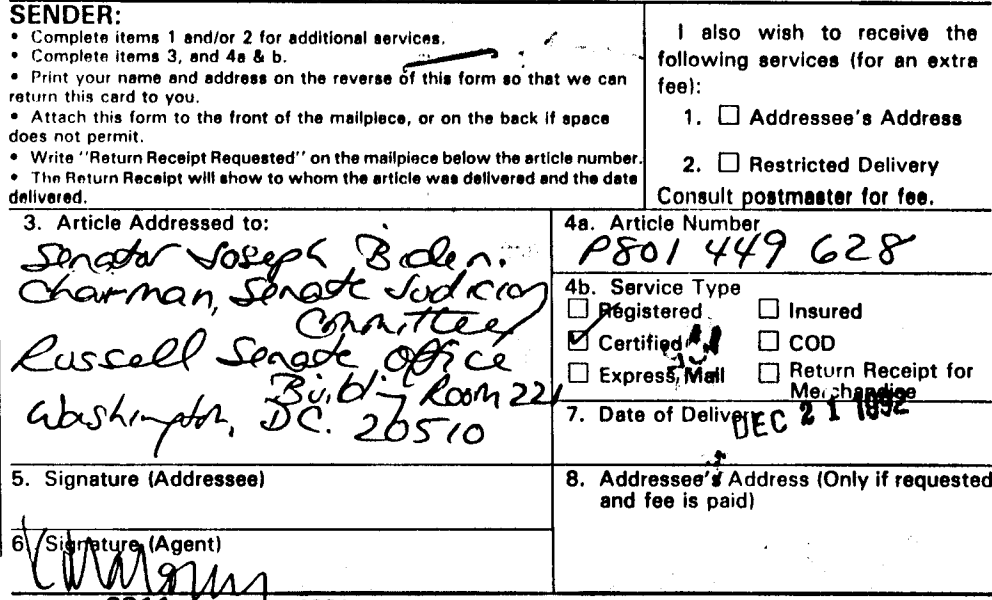 SENDER:
• Complete items 1 and/or 2 for additional services.
• Complete items 3, and 4a & b.
• Print your name and address on the reverse of this form so that we can
return this card to you.
• Attach this form to the front of the mailpiece, or on the back if space
does not permit.
• Write "Return Receipt Requested" on the mailpiece below the article number.
• The Return Receipt will show to whom the article was delivered and the date
delivered.
I also wish to receive the
following services (for an extra
fee):
1. ☐ Addressee's Address
2. ☐ Restricted Delivery
Consult postmaster for fee.
3. Article Addressed to:
Senator Joseph Biden.
Chairman, Senate Judiciary
Committee
Russell Senate Office
Building Room 221
Washington, DC. 20510
4a. Article Number
P801 449 628
4b. Service Type
☐ Registered ☐ Insured
☑ Certified ☐ COD
☐ Express Mail ☐ Return Receipt for
Merchandise
7. Date of Delivery
DEC 21 1992
5. Signature (Addressee)
8. Addressee's Address (Only if requested
and fee is paid)
6. Signature (Agent)